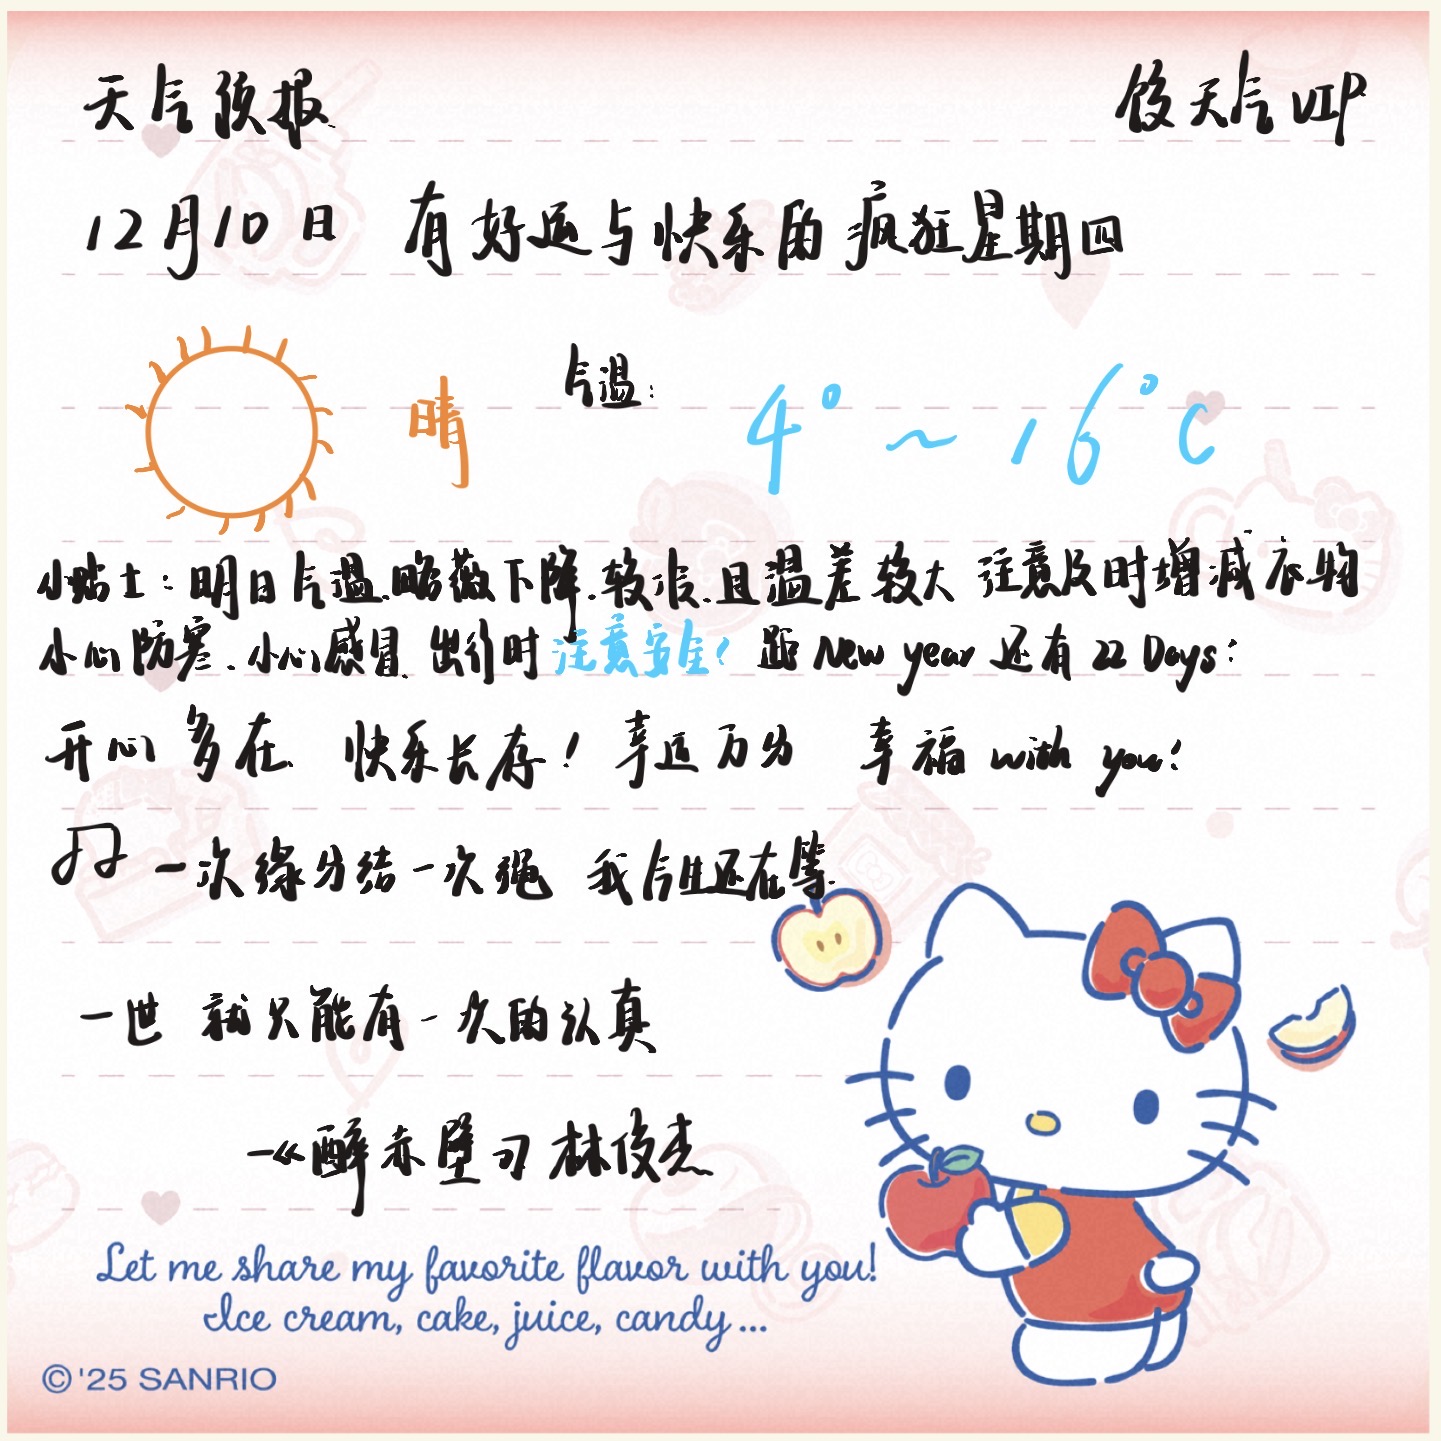 天气预报 饺天气VIP
12月10日 有好运与快乐的疯狂星期四
晴 气温: 4°~16°C
小贴士:明日气温略微下降.较凉.且温差较大 注意及时增减衣物
小心防寒.小心感冒 出行时注意安全! 距New year还有22 Days:
开心多在 快乐长存! 幸运万分 幸福with you!
一次缘分结一次绳 我今生还在等
一世 就只能有一次的认真
—《醉赤壁》林俊杰
Let me share my favorite flavor with you!
Ice cream, cake, juice, candy...
©'25 SANRIO